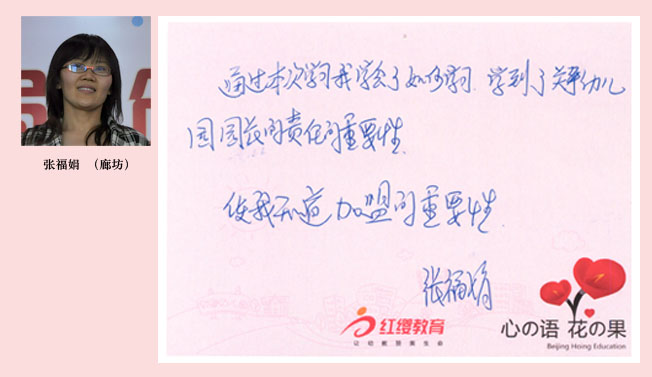 张福娟 （廊坊）
通过本次学习我学会了如何学习 学到了关于幼儿
园园长的责任的重要性
使我知道加盟的重要性
张福娟
红缨教育
让幼教预演生命
心の语 花の果
Beijing Hoing Education